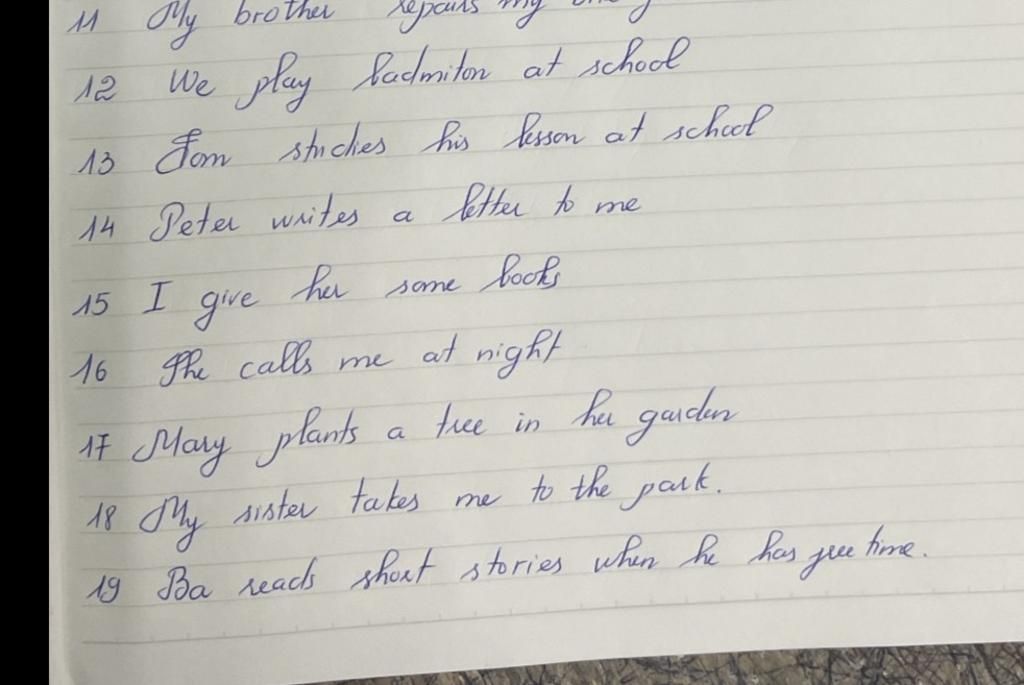 11 My brother repairs my
12 We play badmiton at school
13 Tom studies his lesson at school
14 Peter writes a letter to me
15 I give her some books
16 She calls me at night
17 Mary plants a tree in her garden
18 My sister takes me to the park.
19 Ba reads short stories when he has free time.